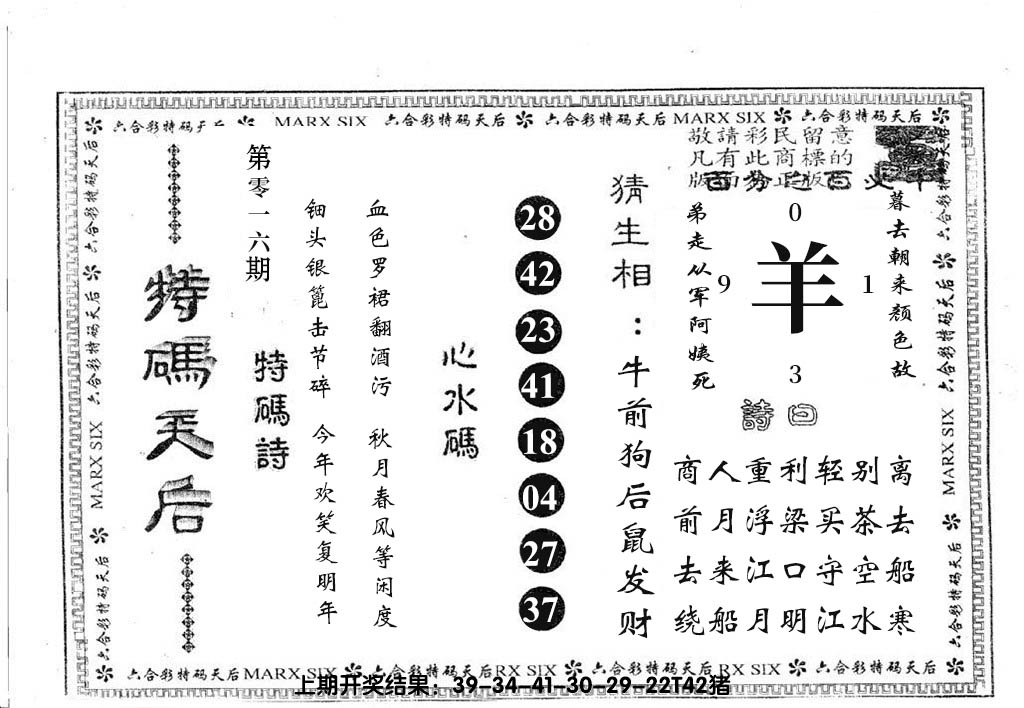 六合彩特码 MARX SIX 六合彩特码天后 六合彩特码天后 MARX SIX 六合彩特码天后
敬請彩民留意
凡有此商標的
六合彩特码天后
MARX SIX
六合彩特码天后
特碼天后
第零一六期
特碼詩
钿头银篦击节碎 今年欢笑复明年
血色罗裙翻酒污 秋月春风等闲度
心水碼
28
42
23
41
18
04
27
37
猜生相：牛前狗后鼠发财
弟走从军阿姨死
0
9 羊 1
3
暮去朝来颜色故
詩曰
商人重利轻别离
前月浮梁买茶去
去来江口守空船
绕船月明江水寒
六合彩特码天后
六合彩特码天后
MARX SIX
六合彩特码天后
六合彩特码天后 MARX SIX 六合彩特码天后 RX SIX 六合彩特码天后 RX SIX 六合彩特码天后
上期开奖结果：39-34-41-30-29-22T42猪